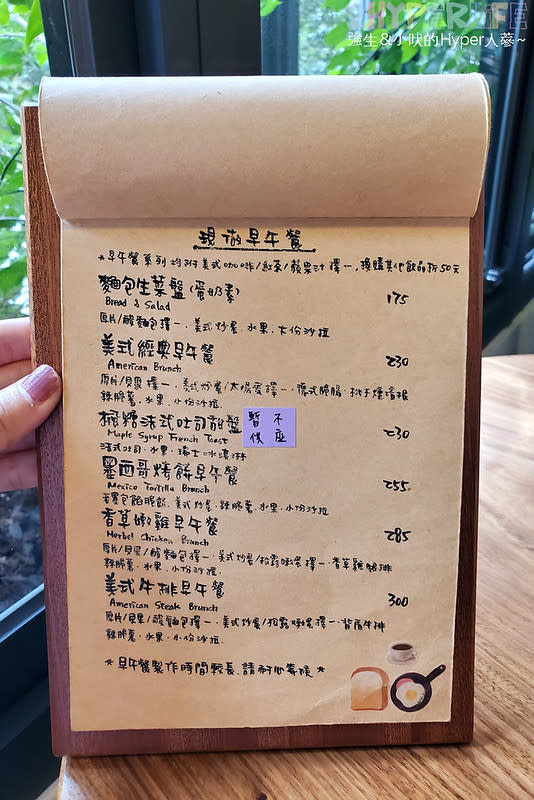 HYPERLIFE
強生&小吠的Hyper人蔘~
現做早午餐
*早午餐系列均附美式咖啡/紅茶/蘋果汁擇一,換購其他飲品折50元
麵包生菜盤(蛋奶素) 175
Bread & Salad
貝片/酸麵包擇一.美式炒蛋.水果.大份沙拉
美式經典早午餐 230
American Brunch
貝片/貝果擇一.美式炒蛋/太陽蛋擇一.德式脆腸.
辣脆薯.水果.小份沙拉
楓糖法式吐司鬆盤 230
暫不供應
Maple Syrup French Toast
法式吐司.水果.瑞士冰淇淋
墨西哥烤餅早午餐 255
Mexico Tortilla Brunch
美式炒蛋.辣脆薯.水果.小份沙拉
香草嫩雞早午餐 285
Herbal Chicken Brunch
貝片/貝果/酸麵包擇一.美式炒蛋/擇一.香草雞腿排
辣脆薯.水果.小份沙拉
美式牛排早午餐 300
American Steak Brunch
貝片/貝果/酸麵包擇一.美式炒蛋/擇一.牛排
辣脆薯.水果.小份沙拉
*早午餐製作時間較長,請耐心等候*